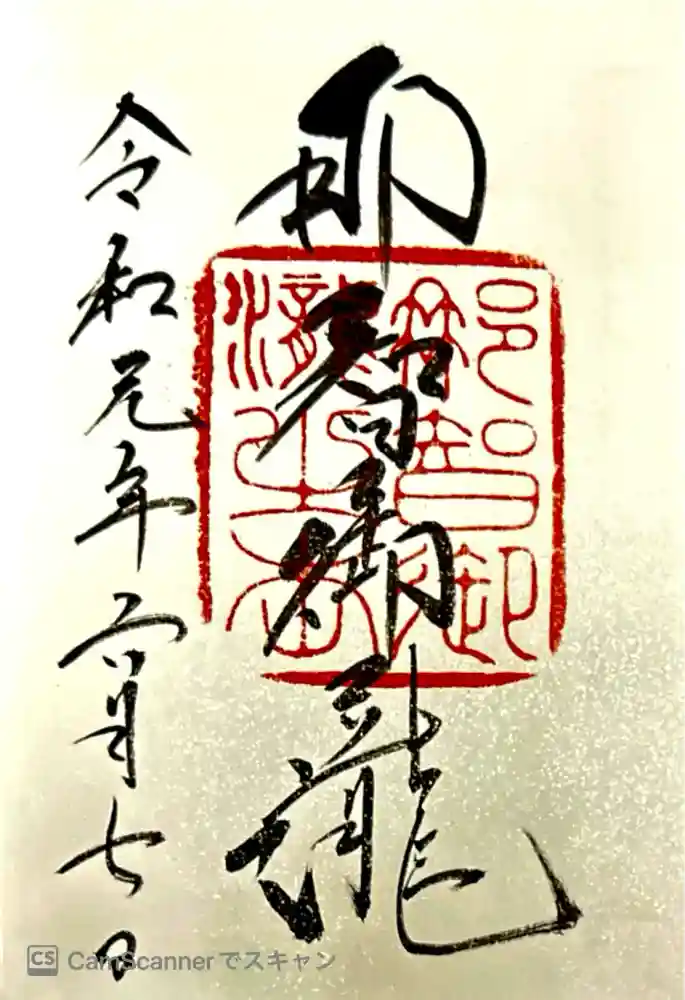 那智御瀧
那智御
瀧
令和元年六月七日
CS CamScannerでスキャン